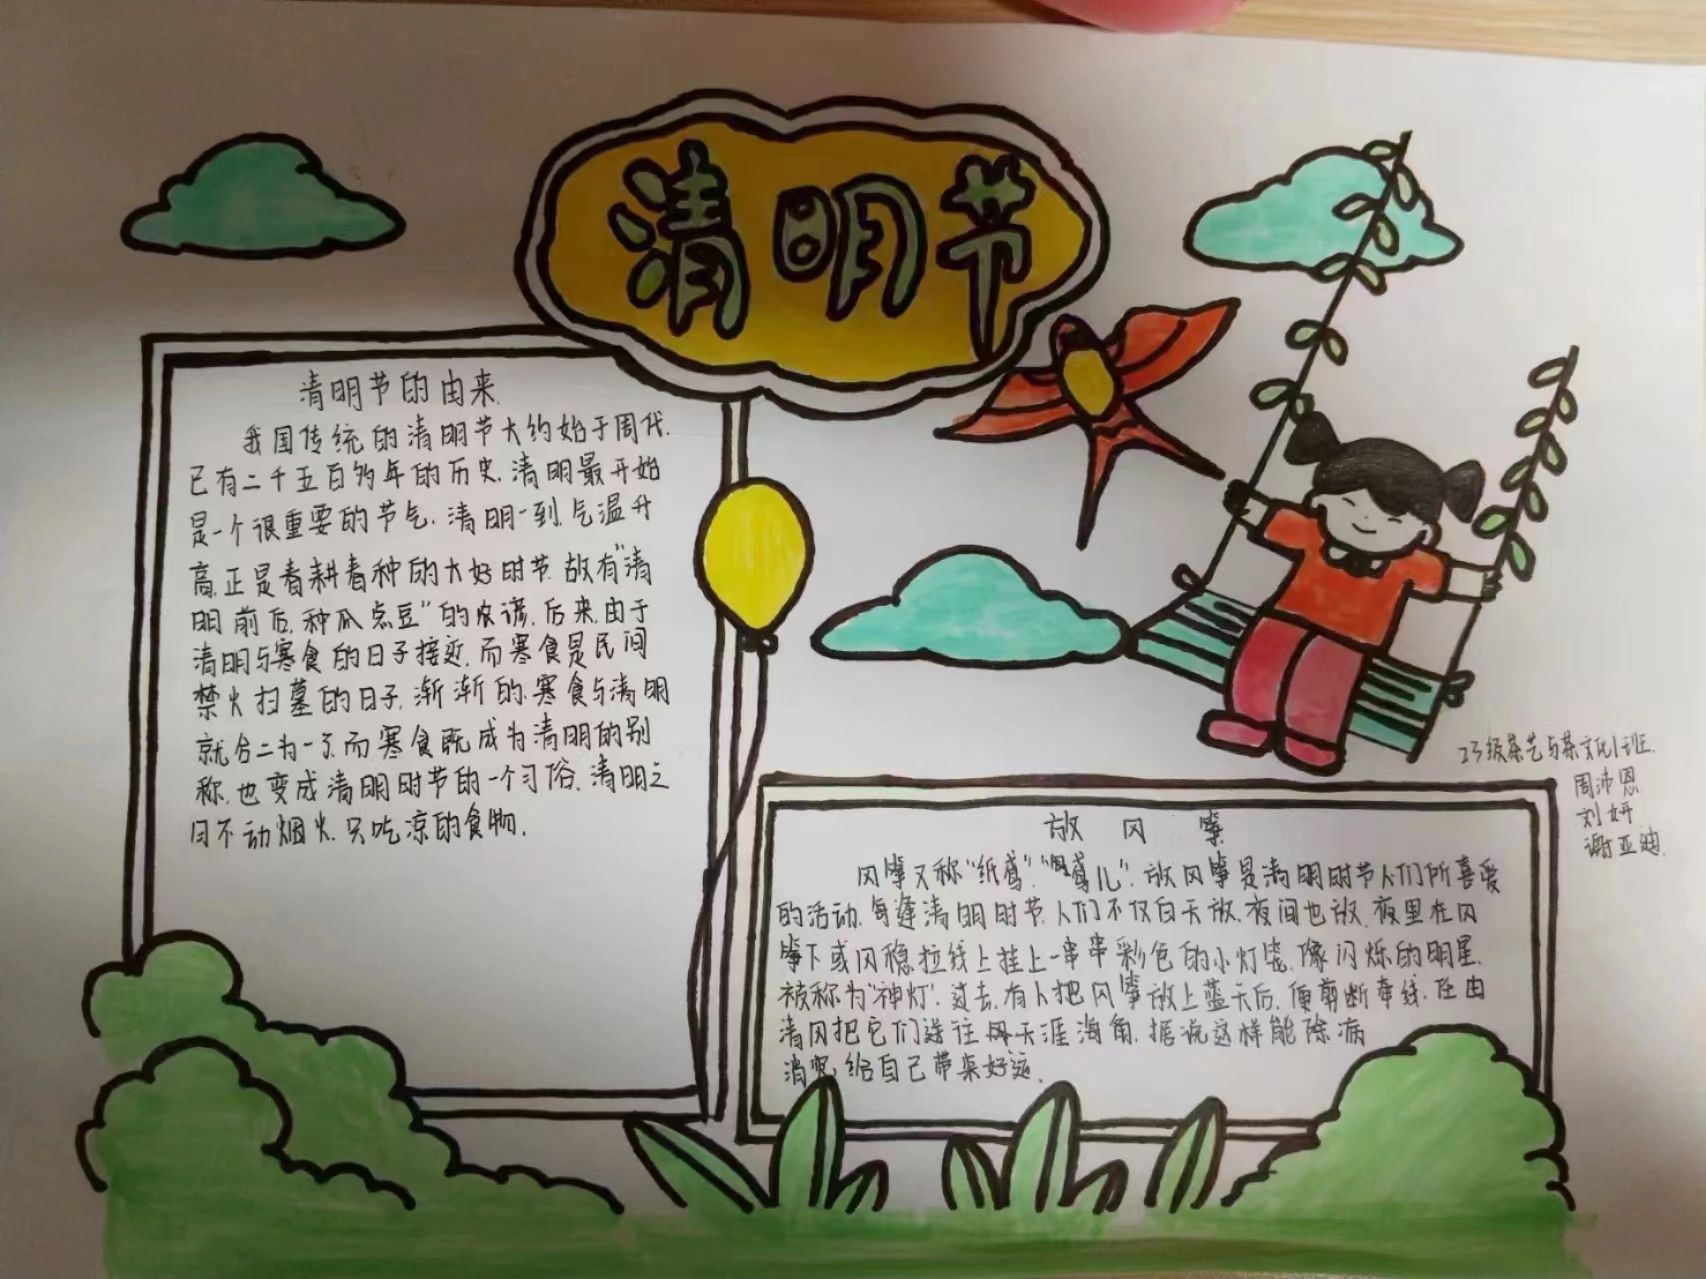 清明节
清明节的由来.
我国传统的清明节大约始于周代.
已有二千五百多年的历史.清明最开始
是一个很重要的节气.清明一到.气温升
高.正是春耕春种的大好时节.故有"清
明前后.种瓜点豆"的农谚.后来.由于
清明与寒食的日子接近.而寒食是民间
禁火扫墓的日子.渐渐的.寒食与清明
就合二为一了.而寒食既成为清明的别
称.也变成清明时节的一个习俗.清明之
日不动烟火.只吃凉的食物.
23级茶艺与茶文化1班.
周沛恩
刘妍
谢亚迪.
放风筝
风筝又称"纸鸢"."鸢儿".放风筝是清明时节人们所喜爱
的活动.每逢清明时节.人们不仅白天放.夜间也放.夜里在风
筝下或风稳拉线上挂上一串串彩色的小灯笼.像闪烁的明星.
被称为"神灯".过去.有人把风筝放上蓝天后.便剪断牵线.任由
清风把它们送往天涯海角.据说这样能除病
消灾.给自己带来好运.